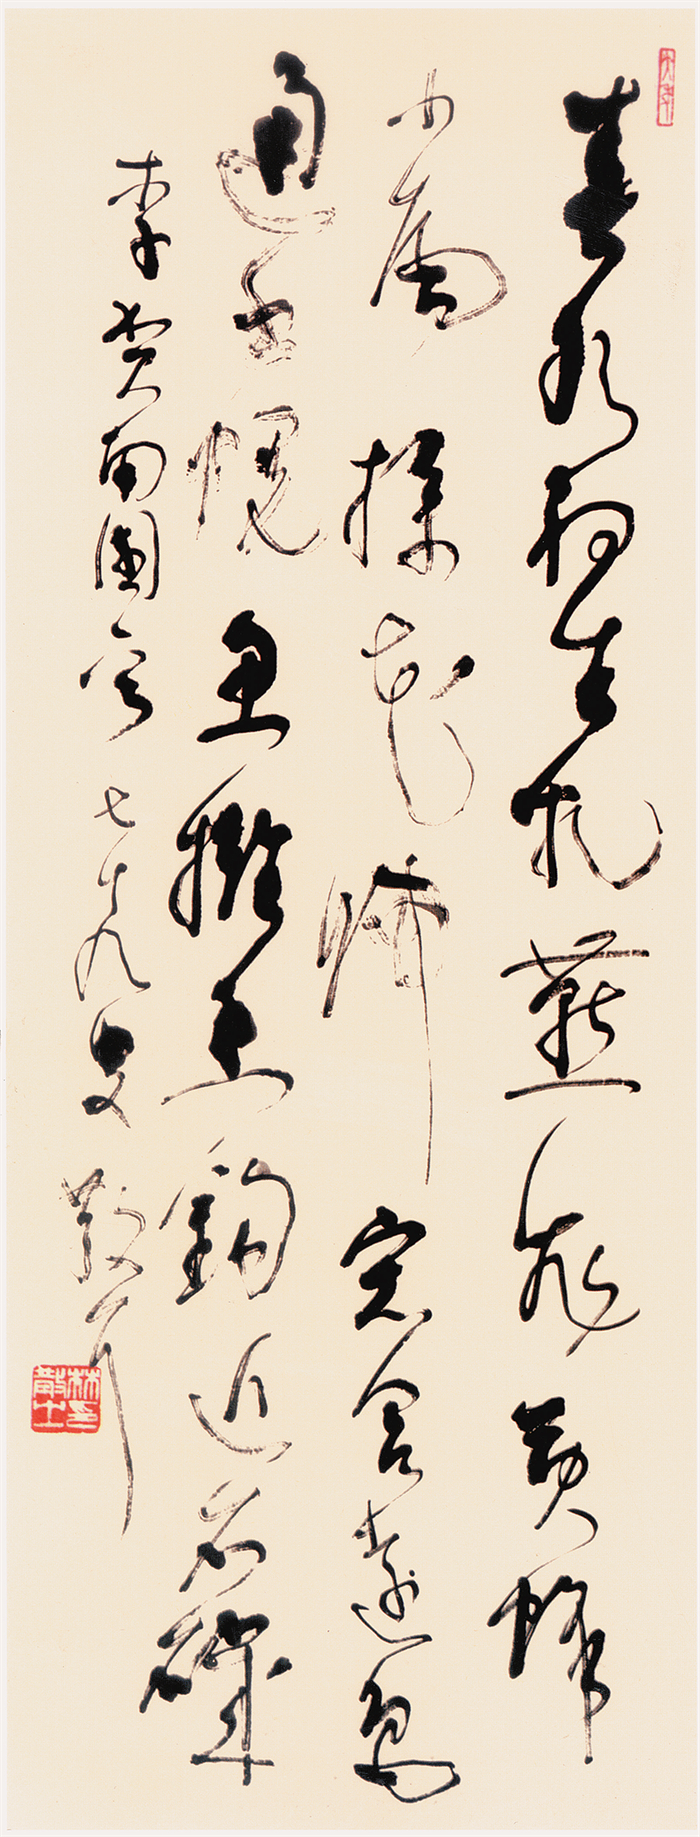 春水初生乳燕飛黃蜂
小尾撲花歸窗含遠色
通書幌魚擁香鈎近石磯
李賀南園 七十九叟 散耳
林散之印